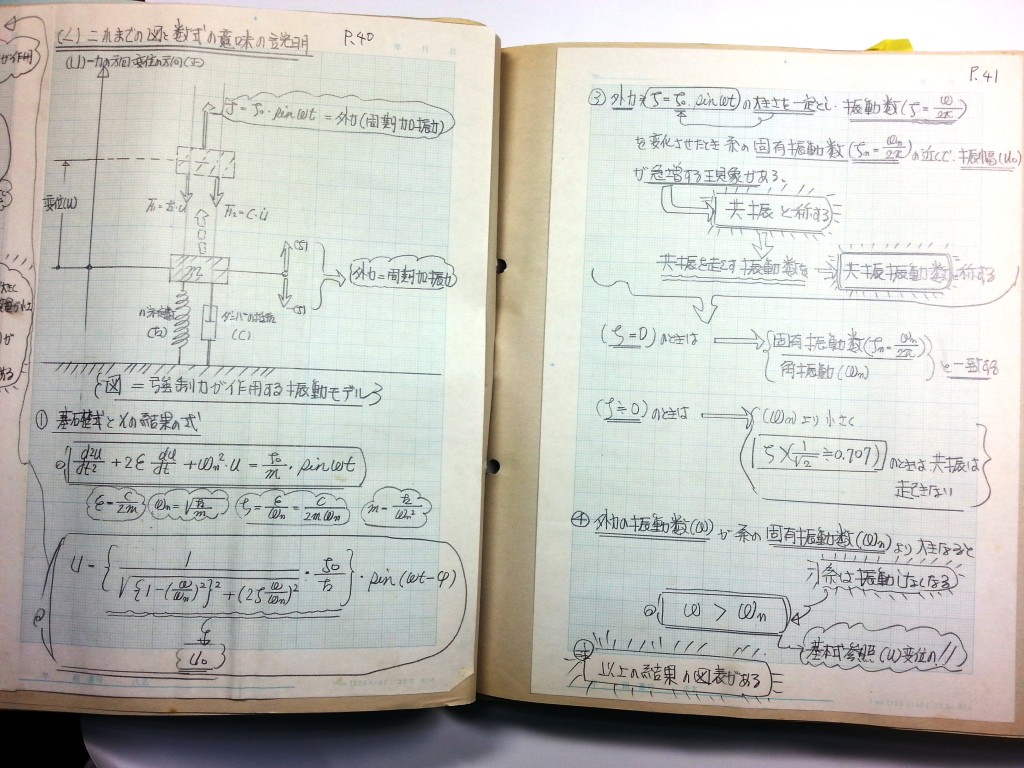 (2) これまでの図と数式の意味の説明 P.40
(1) 力の方向・変位の方向(正)
f = f₀・sin ωt = 外力(周期加振力)
変位(u)
F₁ = k・u
F₂ = C・u̇
外力=周期加振力
バネ定数
(k)
(C)
図 = 強制力が作用する振動モデル
① 基礎式とその結果の式
d²u/dt² + 2ε du/dt + ωn²・u = f₀/m・sin ωt
ε = C/2m ωn = √k/m ζ = ε/ωn = C/2mωn m = k/ωn²
② u = { 1/√{1-(ω/ωn)²}² + (2ζ ω/ωn)² ・ f₀/k }・sin(ωt-φ)
u₀
P.41
③ 外力(f = f₀・sin ωt)の大きさを一定とし、振動数(f = ω/2π)
を変化させたとき系の固有振動数(fn = ωn/2π)の近くで、振幅(u₀)
が急増する現象がある。
共振と称する
共振を起こす振動数を 共振振動数と称する
(ζ=0)のときは 固有振動数(fn = ωn/2π)
角振動(ωn) と一致する
(ζ≒0)のときは (ωn)より小さく
ζ > 1/√2 ≒ 0.707 のときは共振は
起きない
④ 外力の振動数(ω)が系の固有振動数(ωn)より大となると
系は振動しなくなる
ω > ωn
基本式参照(u)変位の//
以上の結果の図表がある